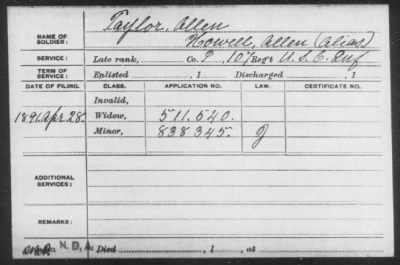 Taylor, Allen
NAME OF SOLDIER: Howell, Allen (alias)
SERVICE: Late rank, Co. 107 Regt U.S.C. Inf
TERM OF SERVICE: Enlisted , 1 Discharged , 1
DATE OF FILING. CLASS. APPLICATION NO. LAW. CERTIFICATE NO.
Invalid,
1891 Apr 28 Widow, 511.540.
Minor, 838345.
ADDITIONAL SERVICES:
REMARKS:
N.D.A. Died , 1 , at